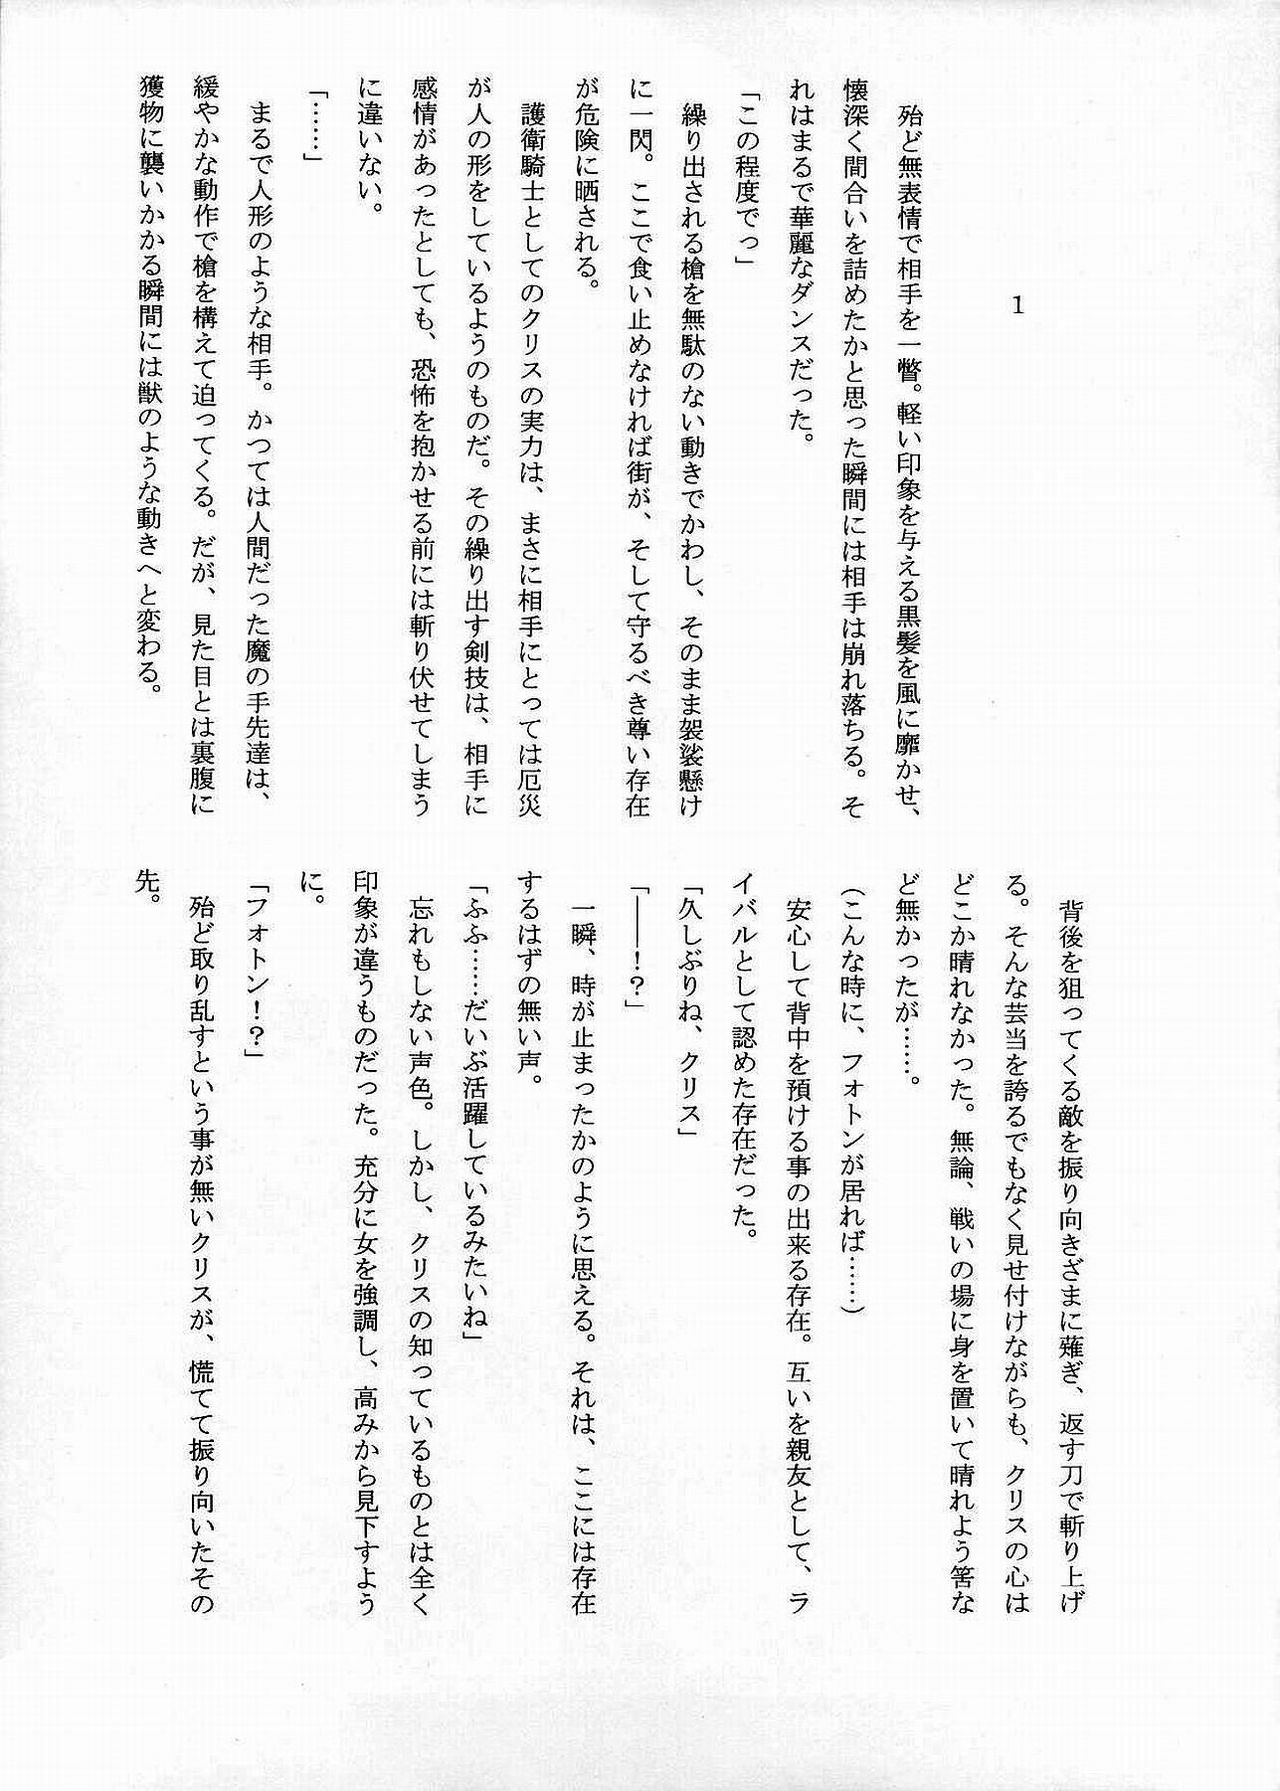 1
殆ど無表情で相手を一瞥。軽い印象を与える黒髪を風に靡かせ、
懐深く間合いを詰めたかと思った瞬間には相手は崩れ落ちる。そ
れはまるで華麗なダンスだった。
「この程度でっ」
繰り出される槍を無駄のない動きでかわし、そのまま袈裟懸け
に一閃。ここで食い止めなければ街が、そして守るべき尊い存在
が危険に晒される。
護衛騎士としてのクリスの実力は、まさに相手にとっては厄災
が人の形をしているようのものだ。その繰り出す剣技は、相手に
感情があったとしても、恐怖を抱かせる前には斬り伏せてしまう
に違いない。
「……」
まるで人形のような相手。かつては人間だった魔の手先達は、
緩やかな動作で槍を構えて迫ってくる。だが、見た目とは裏腹に
獲物に襲いかかる瞬間には獣のような動きへと変わる。
背後を狙ってくる敵を振り向きざまに薙ぎ、返す刀で斬り上げ
る。そんな芸当を誇るでもなく見せ付けながらも、クリスの心は
どこか晴れなかった。無論、戦いの場に身を置いて晴れよう筈な
ど無かったが……。
（こんな時に、フォトンが居れば……）
安心して背中を預ける事の出来る存在。互いを親友として、ラ
イバルとして認めた存在だった。
「久しぶりね、クリス」
「――！？」
一瞬、時が止まったかのように思える。それは、ここには存在
するはずの無い声。
「ふふ……だいぶ活躍しているみたいね」
忘れもしない声色。しかし、クリスの知っているものとは全く
印象が違うものだった。充分に女を強調し、高みから見下すよう
に。
「フォトン！？」
殆ど取り乱すという事が無いクリスが、慌てて振り向いたその
先。